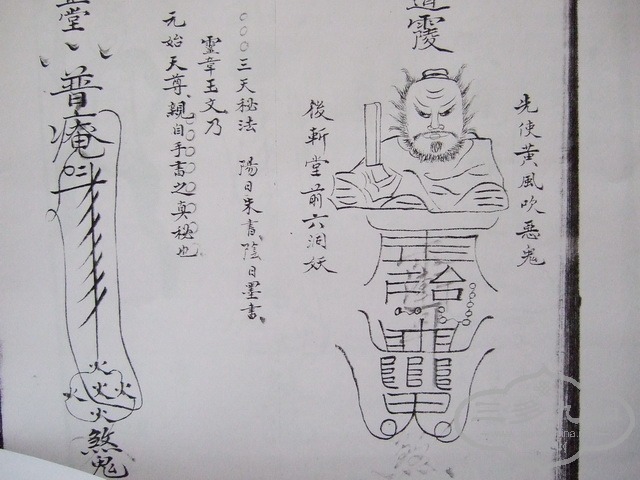 先使黃風吹惡鬼
後斬堂前六洞妖
○○○三天秘法 陽日朱書陰日墨書、
靈章王文乃
元始天尊、親自手書之真秘也
堂
普庵
火
火火火
火
煞鬼